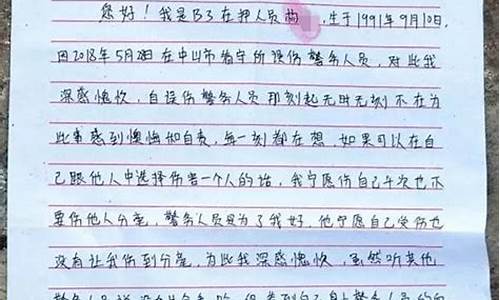 您好！我是B3在押人员曲 ，生于1991年9月10日.
因2018年5月28日在中山市看守所误伤警务人员，对此我
深感愧疚，自误伤警务人员那刻起无时无刻不在为
此事感到懊悔和自责，每一刻都在想，如果可以在自
己跟他人中选择伤害一个人的话，我宁愿伤自己千次也不
要伤他人分毫，警务人员是为了我好，他宁愿自己受伤也
没有让我伤到分毫，为此我深感愧疚，虽然听其他
警务人员说没有什么